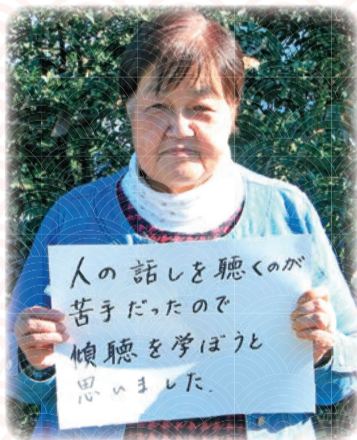 人の話しを聴くのが
苦手だったので
傾聴を学ぼうと
思いました.